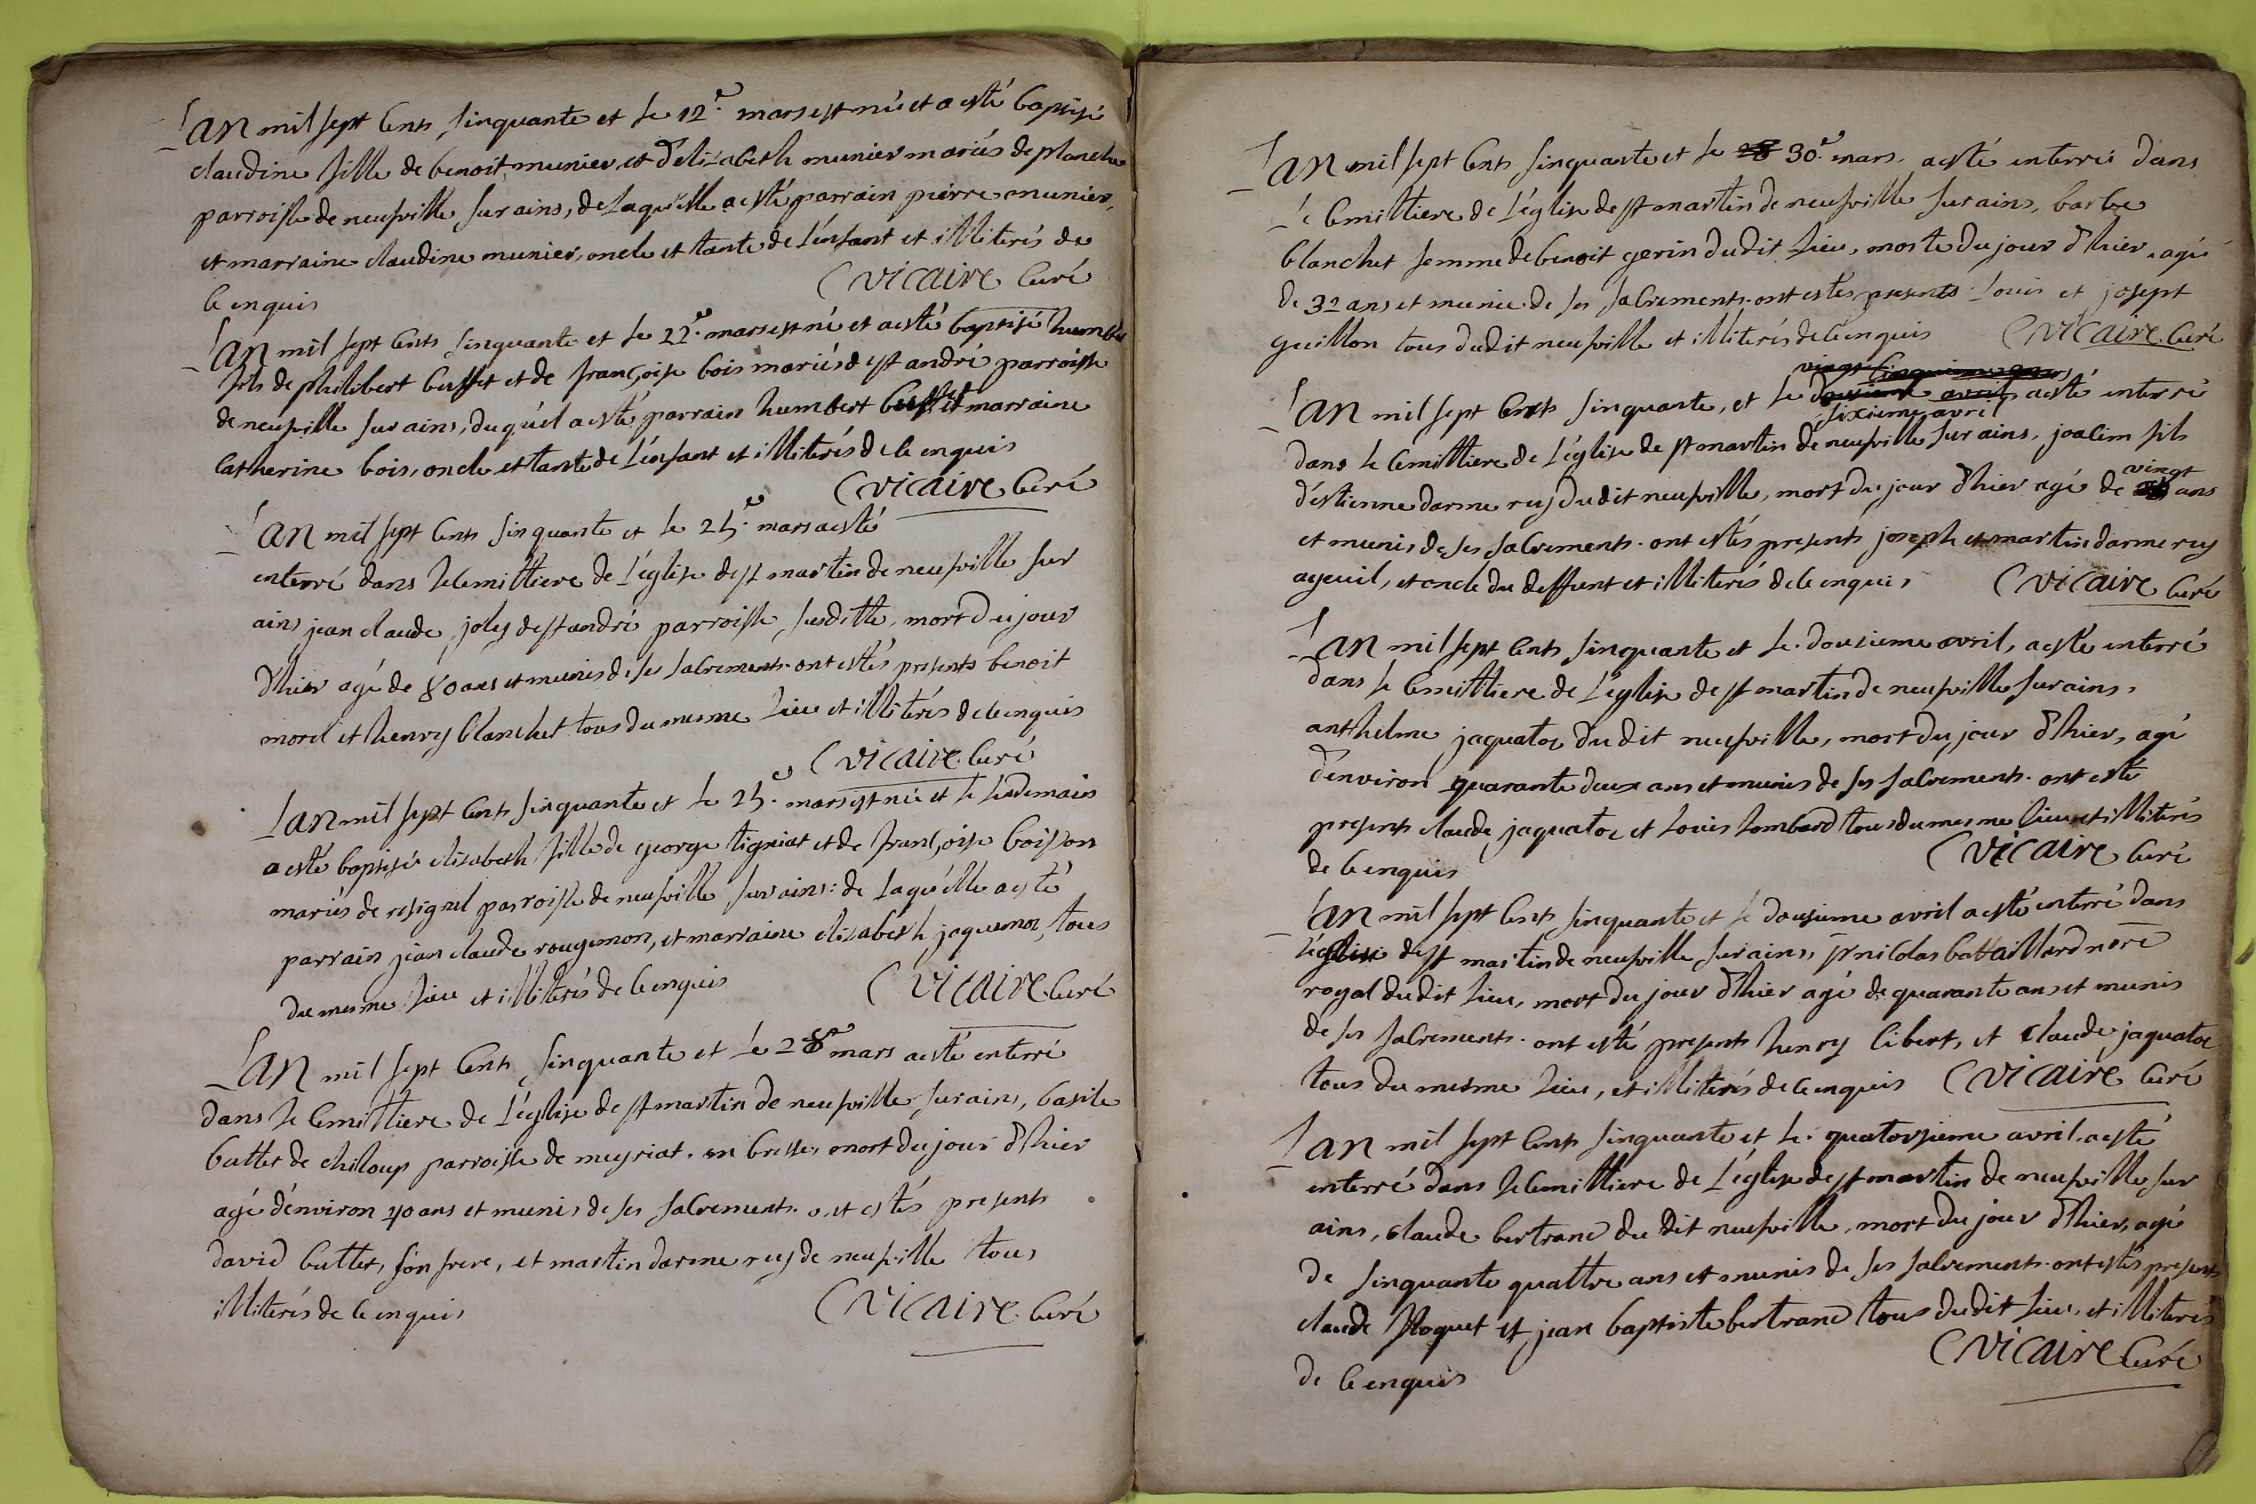 Lan mil sept cents sinquante et le 12.e mars est née et a esté baptisée
claudine fille de benoit munier et d'elizabeth munier mariés de planche
parroisse de neufville sur ains, de laquelle a esté parrain pierre munier,
et marraine claudine munier, oncle et tante de l'enfant et illiterés de
ce enquis
Vicaire Curé
Lan mil sept cents sinquante et le 22.e mars est né et a esté baptisé humbert
fils de philibert buffet et de françoise bois mariés de st andré parroisse
de neufville sur ains, duquel a esté parrain humbert buffet et marraine
catherine bois, oncle et tante de l'enfant et illiterés de ce enquis
Vicaire Curé
Lan mil sept cents sinquante et le 25.e mars a esté
enterré dans le cemittiere de l'église de st martin de neufville sur
ains jean claude joly de st andré parroisse susditte, mort du jour
d'hier agé de 80 ans et munis de ses sacrements. ont estés presents benoit
morel et henry blanchet tous du mesme lieu et illiterés de ce enquis
Vicaire Curé
Lan mil sept cents sinquante et le 25.e mars est née et le lendemain
a esté baptisée elizabeth fille de george tigniat et de françoise boisson
mariés de resignel parroisse de neufville sur ains: de laquelle a esté
parrain jean claude rougemon, et marraine elizabeth jaquemet, tous
du mesme lieu et illiterés de ce enquis
Vicaire Curé
Lan mil sept cents sinquante et le 28e mars a esté enterré
dans le cemittiere de l'église de st martin de neufville sur ains, basile
buttet de chiloup parroisse de meyriat en bresse, mort du jour d'hier
agé d'environ 40 ans et munis de ses sacrements. ont estés presents
david buttet, son frere, et martin darmerey de neufville tous
illiterés de ce enquis
Vicaire Curé
Lan mil sept cents sinquante et le 30.e mars a esté enterrée dans
le cemittiere de l'église de st martin de neufville sur ains, barbe
blanchet femme de benoit gerin dudit lieu, morte du jour d'hier, agée
de 32 ans et munie de ses sacrements. ont estés presents louis et josept
guillon tous dudit neufville et illiterés de ce enquis Vicaire Curé
vingt cinquieme mars
Lan mil sept cents sinquante, et le dousieme avril a esté enterré
sixieme avril
dans le cemittiere de l'église de st martin de neufville sur ains, joacim fils
d'estienne darmerey dudit neufville, mort du jour d'hier agé de vingt ans
et munis de ses sacrements. ont estés presents joseph et martin darmerey
ayeuil, et oncle du deffunt et illiterés de ce enquis Vicaire Curé
Lan mil sept cents sinquante et le dousieme avril, a esté enterré
dans le cemittiere de l'église de st martin de neufville sur ains,
anthelme jaquatot dudit neufville, mort du jour d'hier, agé
d'environ quarante deux ans et munis de ses sacrements. ont esté
presents claude jaquatot et louis lombard tous du mesme lieu et illiterés
de ce enquis
Vicaire Curé
Lan mil sept cents sinquante et le dousieme avril a esté enterré dans
l'église de st martin de neufville sur ains, sr nicolas battaillard nore
royal dudit lieu, mort du jour d'hier agé de quarante ans et munis
de ses sacrements. ont esté presents henry libert, et claude jaquatot
tous du mesme lieu, et illiterés de ce enquis Vicaire Curé
Lan mil sept cents sinquante et le quatorsieme avril a esté
enterré dans le cemittiere de l'église de st martin de neufville sur
ains, claude bertrand dudit neufville, mort du jour d'hier, agé
de sinquante quattre ans et munis de ses sacrements. ont estés presents
claude et jean baptiste bertrand tous dudit lieu, et illiterés
de ce enquis
Vicaire Curé